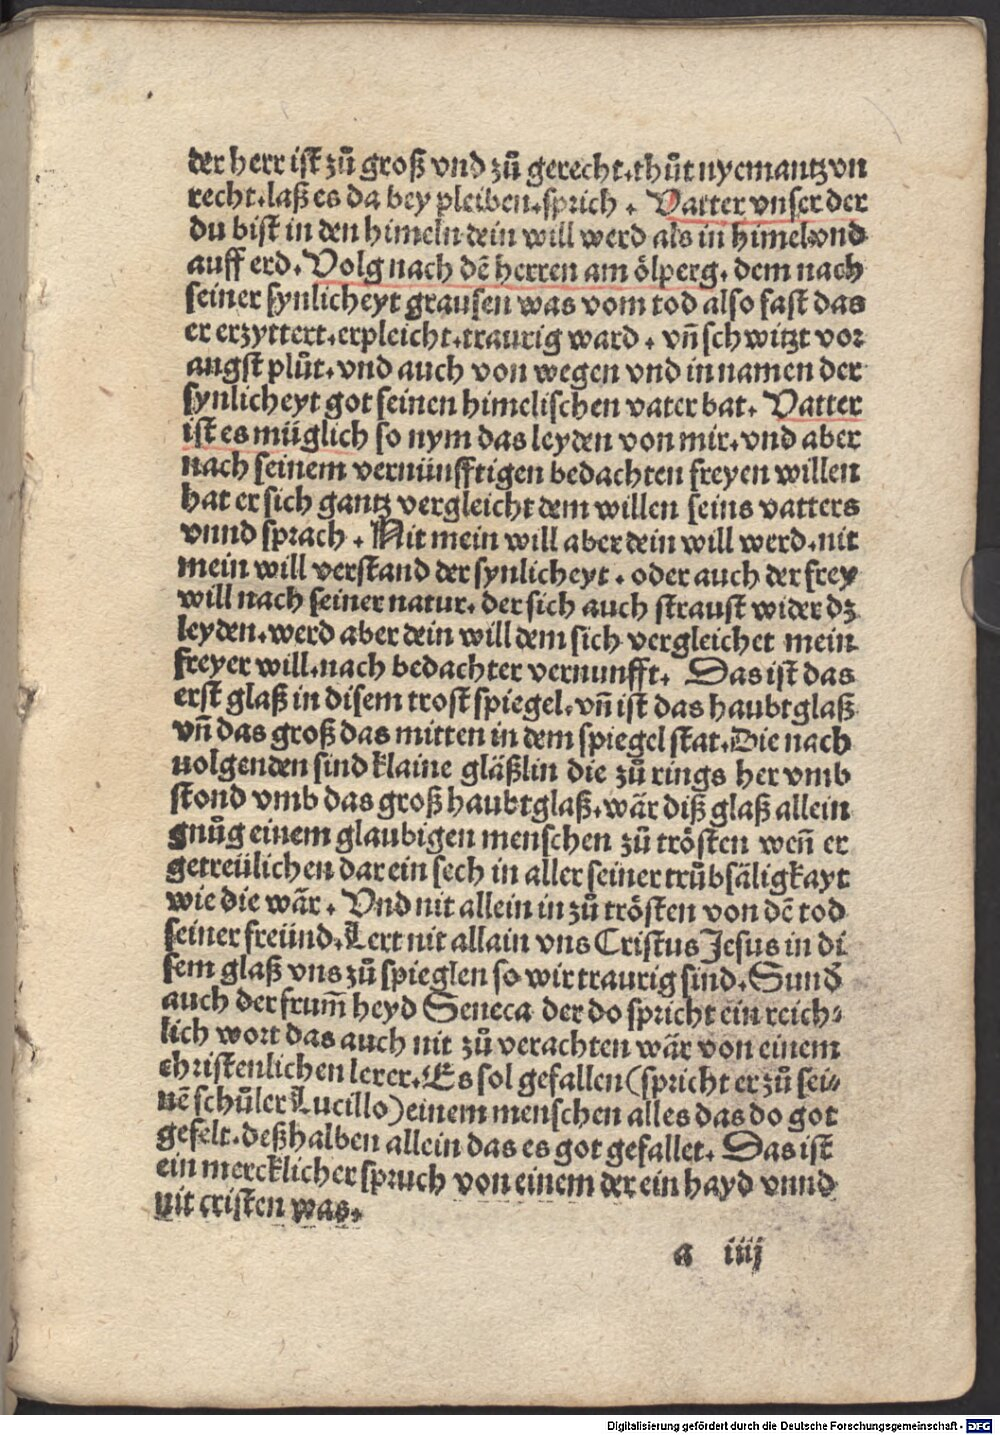 der herr ist zů groß vnd zů gerecht. thůt nyemantz vn
recht. laß es da bey pleiben. sprich . Vatter vnser der
du bist in den himeln dein will werd als in himel vnd
auff erd. Volg nach dē herren am ölperg. dem nach
seiner synlicheyt grausen was vom tod also fast das
er erzyttert. erpleicht. traurig ward . vn̄ schwitzt vor
angst plůt. vnd auch von wegen vnd in namen der
synlicheyt got seinen himelischen vater bat. Vatter
ist es müglich so nym das leyden von mir. vnd aber
nach seinem vernünfftigen bedachten freyen willen
hat er sich gantz vergleicht dem willen seins vatters
vnnd sprach . Nit mein will aber dein will werd. nit
mein will verstand der synlicheyt . oder auch der frey
will nach seiner natur. der sich auch straust wider dz
leyden. werd aber dein will dem sich vergleichet mein
freyer will. nach bedachter vernunfft. Das ist das
erst glaß in disem trost spiegel. vn̄ ist das haubtglaß
vn̄ das groß das mitten in dem spiegel stat. Die nach
uolgenden sind klaine gläßlin die zů rings her vmb
stond vmb das groß haubtglaß. wār diß glaß allein
gnůg einem glaubigen menschen zů trösten wen̄ er
getreülichen dar ein sech in aller seiner trůbsäligkayt
wie die wār . Vnd nit allein in zů trösten von dē tod
seiner freünd. Lert nit allain vns Cristus Jesus in di
sem glaß vns zů spieglen so wir traurig sind. Sund̄
auch der frum̄ heyd Seneca der do spricht ein reich⸗
lich wort das auch nit zů verachten wār von einem
christenlichen lerer. Es sol gefallen (spricht er zů sei⸗
nē schůler Lucillo) einem menschen alles das do got
gefelt. deßhalben allein das es got gefallet. Das ist
ein mercklicher spruch von einem der ein hayd vnnd
nit cristen was.
a iiij
Digitalisierung gefördert durch die Deutsche Forschungsgemeinschaft - DFG